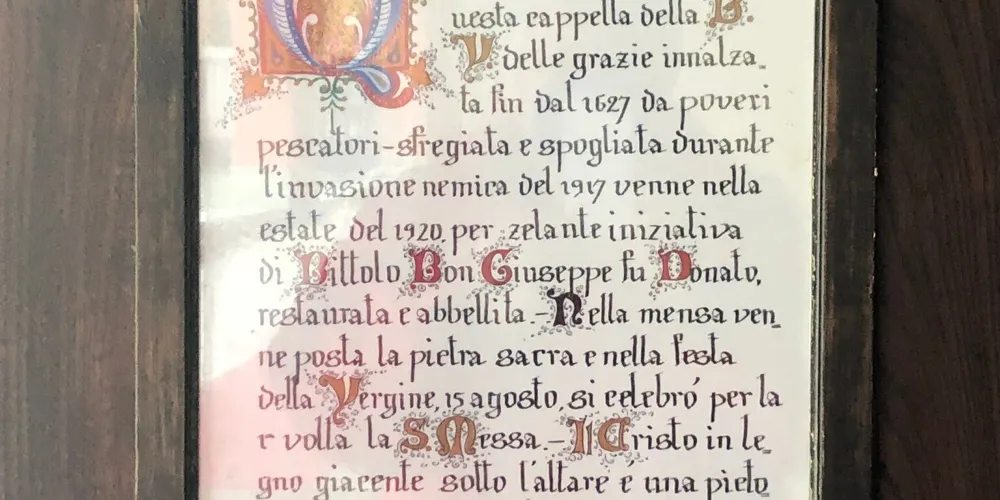 Questa cappella della B.
V. delle grazie innalza-
ta fin dal 1627 da poveri
pescatori-sfregiata e spogliata durante
l'invasione nemica del 1917 venne nella
estate del 1920, per zelante iniziativa
di Bittolo Bon Giuseppe fu Donato,
restaurata e abbellita.-Nella mensa ven-
ne posta la pietra sacra e nella festa
della Vergine, 15 agosto, si celebró per la
1ª volta la S. Messa.-Il Cristo in le-
gno giacente sotto l'altare é una pieto